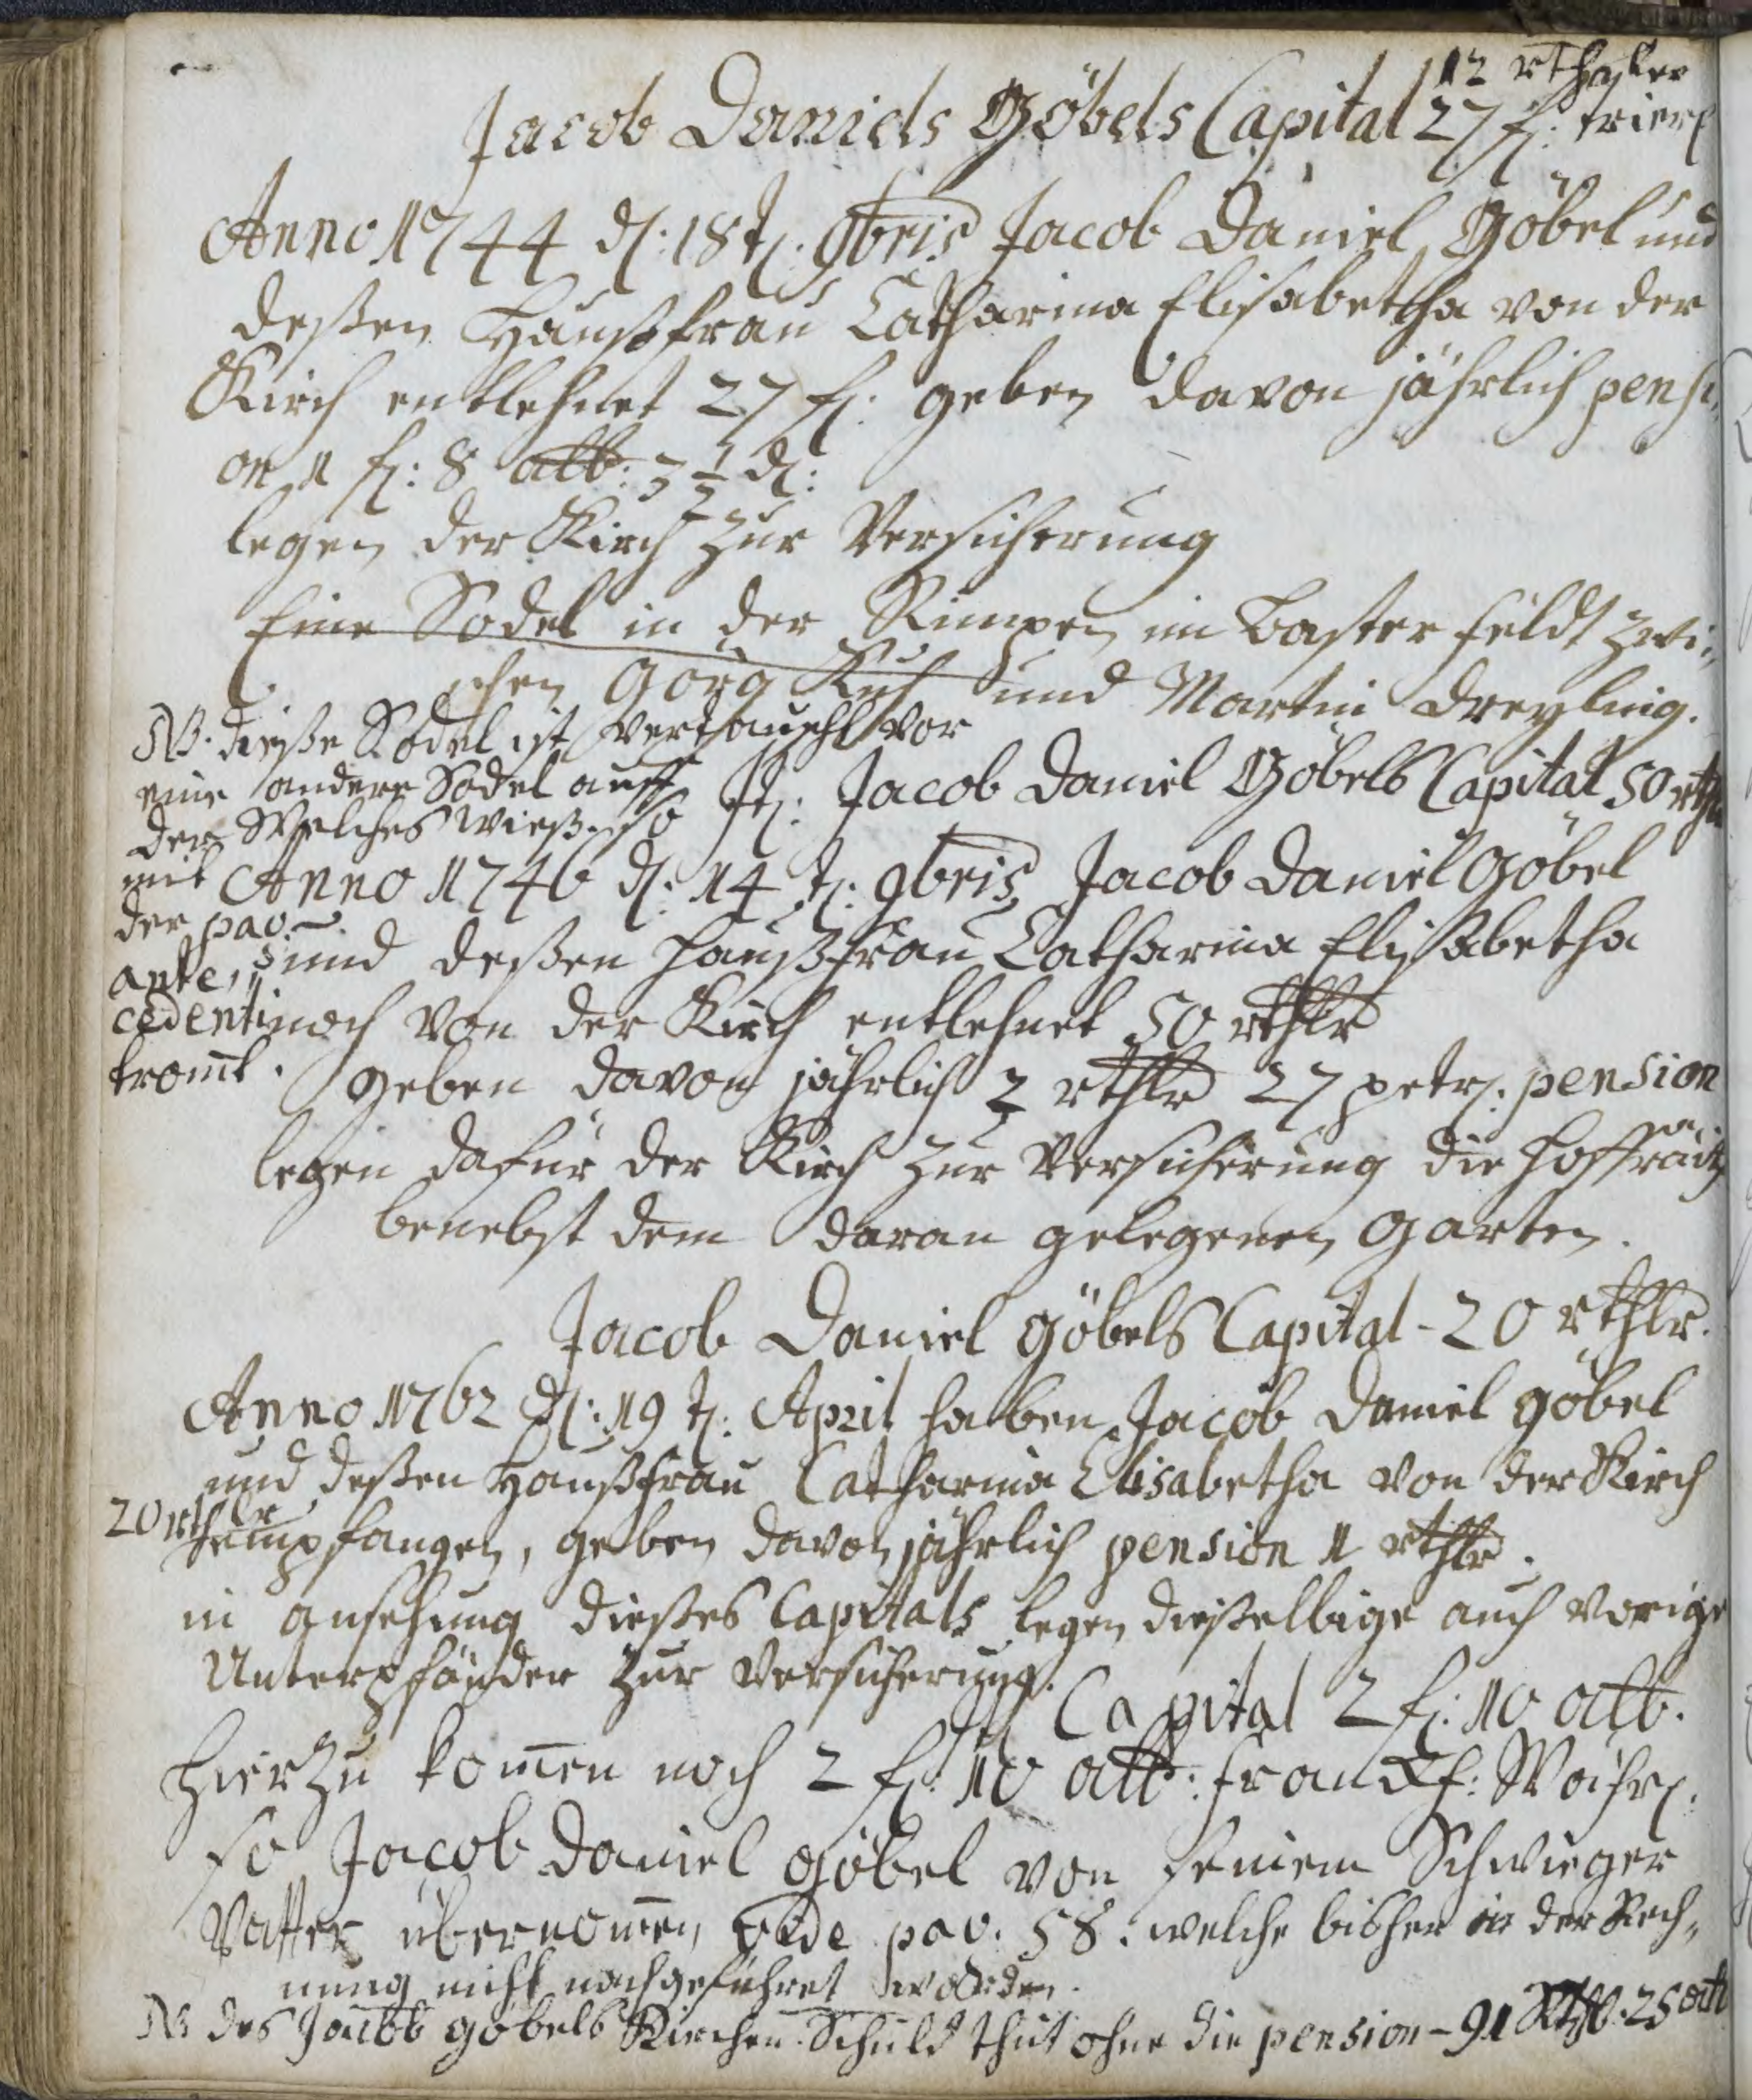 12 rthaler
Jacob Daniels Göbels Capital 27 fl: trier
Anno 1744 d: 18t. 9bris Jacob Daniel Göbel und
deßen Haußfrau Catharina Elisabetha von der
Kirch entlehnet 27 fl: geben davon jährlich pensi„
on 1 fl: 8 alb: 3 1/2 d:
legen der Kirch zur Versicherung
Eine Sodel in der Rimpen im Baster feldt zwi„
schen Görg und Martin Dreyling.
NB. dieße Sodel ist vertauscht vor
eine andere Sodel auff
der Welches wieß. so
mit
der pav.
ante„
cedenti
kom̄t.
It: Jacob Daniel Göbels Capital 50 rthlr
Anno 1746 d: 14 t: 9bris Jacob Daniel Göbel
und deßen Haußfrau Catharina Elisabetha
noch von der Kirch entlehnet 50 rthlr
geben davon jährlich 2 rthlr 27 petr: pension
legen dafür der Kirch zur Versicherung die Hoffräith
benebst dem daran gelegenen Garten.
Jacob Daniel Göbels Capital - 20 rthlr.
Anno 1762 d: 19 t: April haben Jacob Daniel Göbel
und deßen Haußfrau Catharina Elisabetha von der Kirch
20 rthlr
empfangen, geben davon jährlich pension 1 rthlr.
in ansehung dießes Capitals legen dießelbige auch vorige
Unterpfänder zur Versicherung.
Capital 2 fl: 10 alb.
Hierzu kom̄en noch 2 fl: 10 alb: Franckf: Währ:
so Jacob Daniel Göbel von seinem Schwieger
Vatter übernom̄en vide pav. 58. welche bisher in der Rech„
nung nicht nachgeführet worden.
NB des Jacob Göbels Kirchen Schuld thut ohne die pension - 91 Rthlr. 25 alb